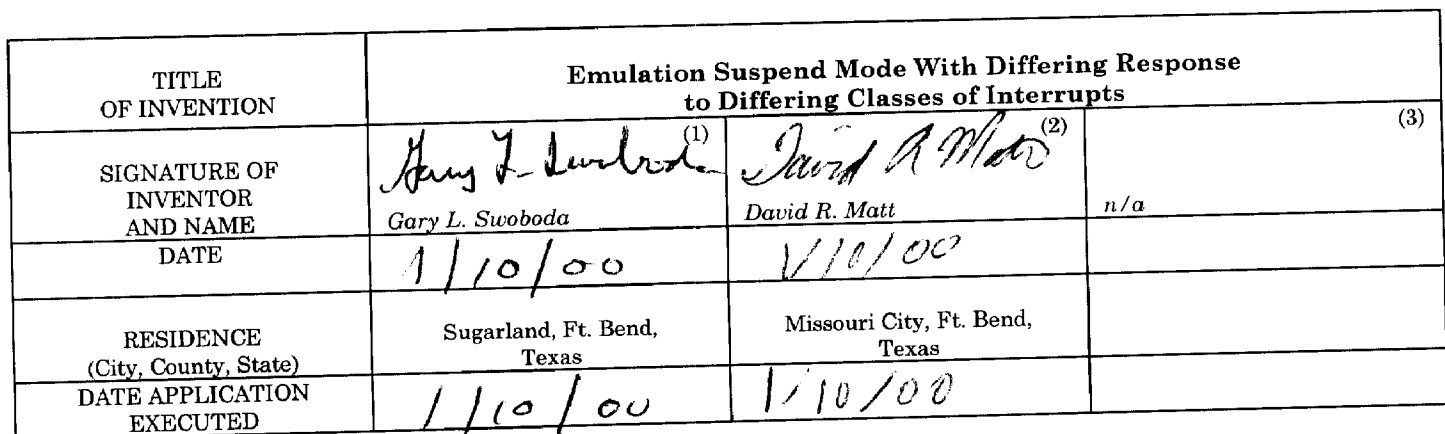 TITLE
OF INVENTION
Emulation Suspend Mode With Differing Response
to Differing Classes of Interrupts
SIGNATURE OF
INVENTOR
AND NAME
Gary L. Swoboda (1)
Gary L. Swoboda
David R Matt (2)
David R. Matt
(3)
n/a
DATE
1/10/00
1/10/00
RESIDENCE
(City, County, State)
Sugarland, Ft. Bend,
Texas
Missouri City, Ft. Bend,
Texas
DATE APPLICATION
EXECUTED
1/10/00
1/10/00